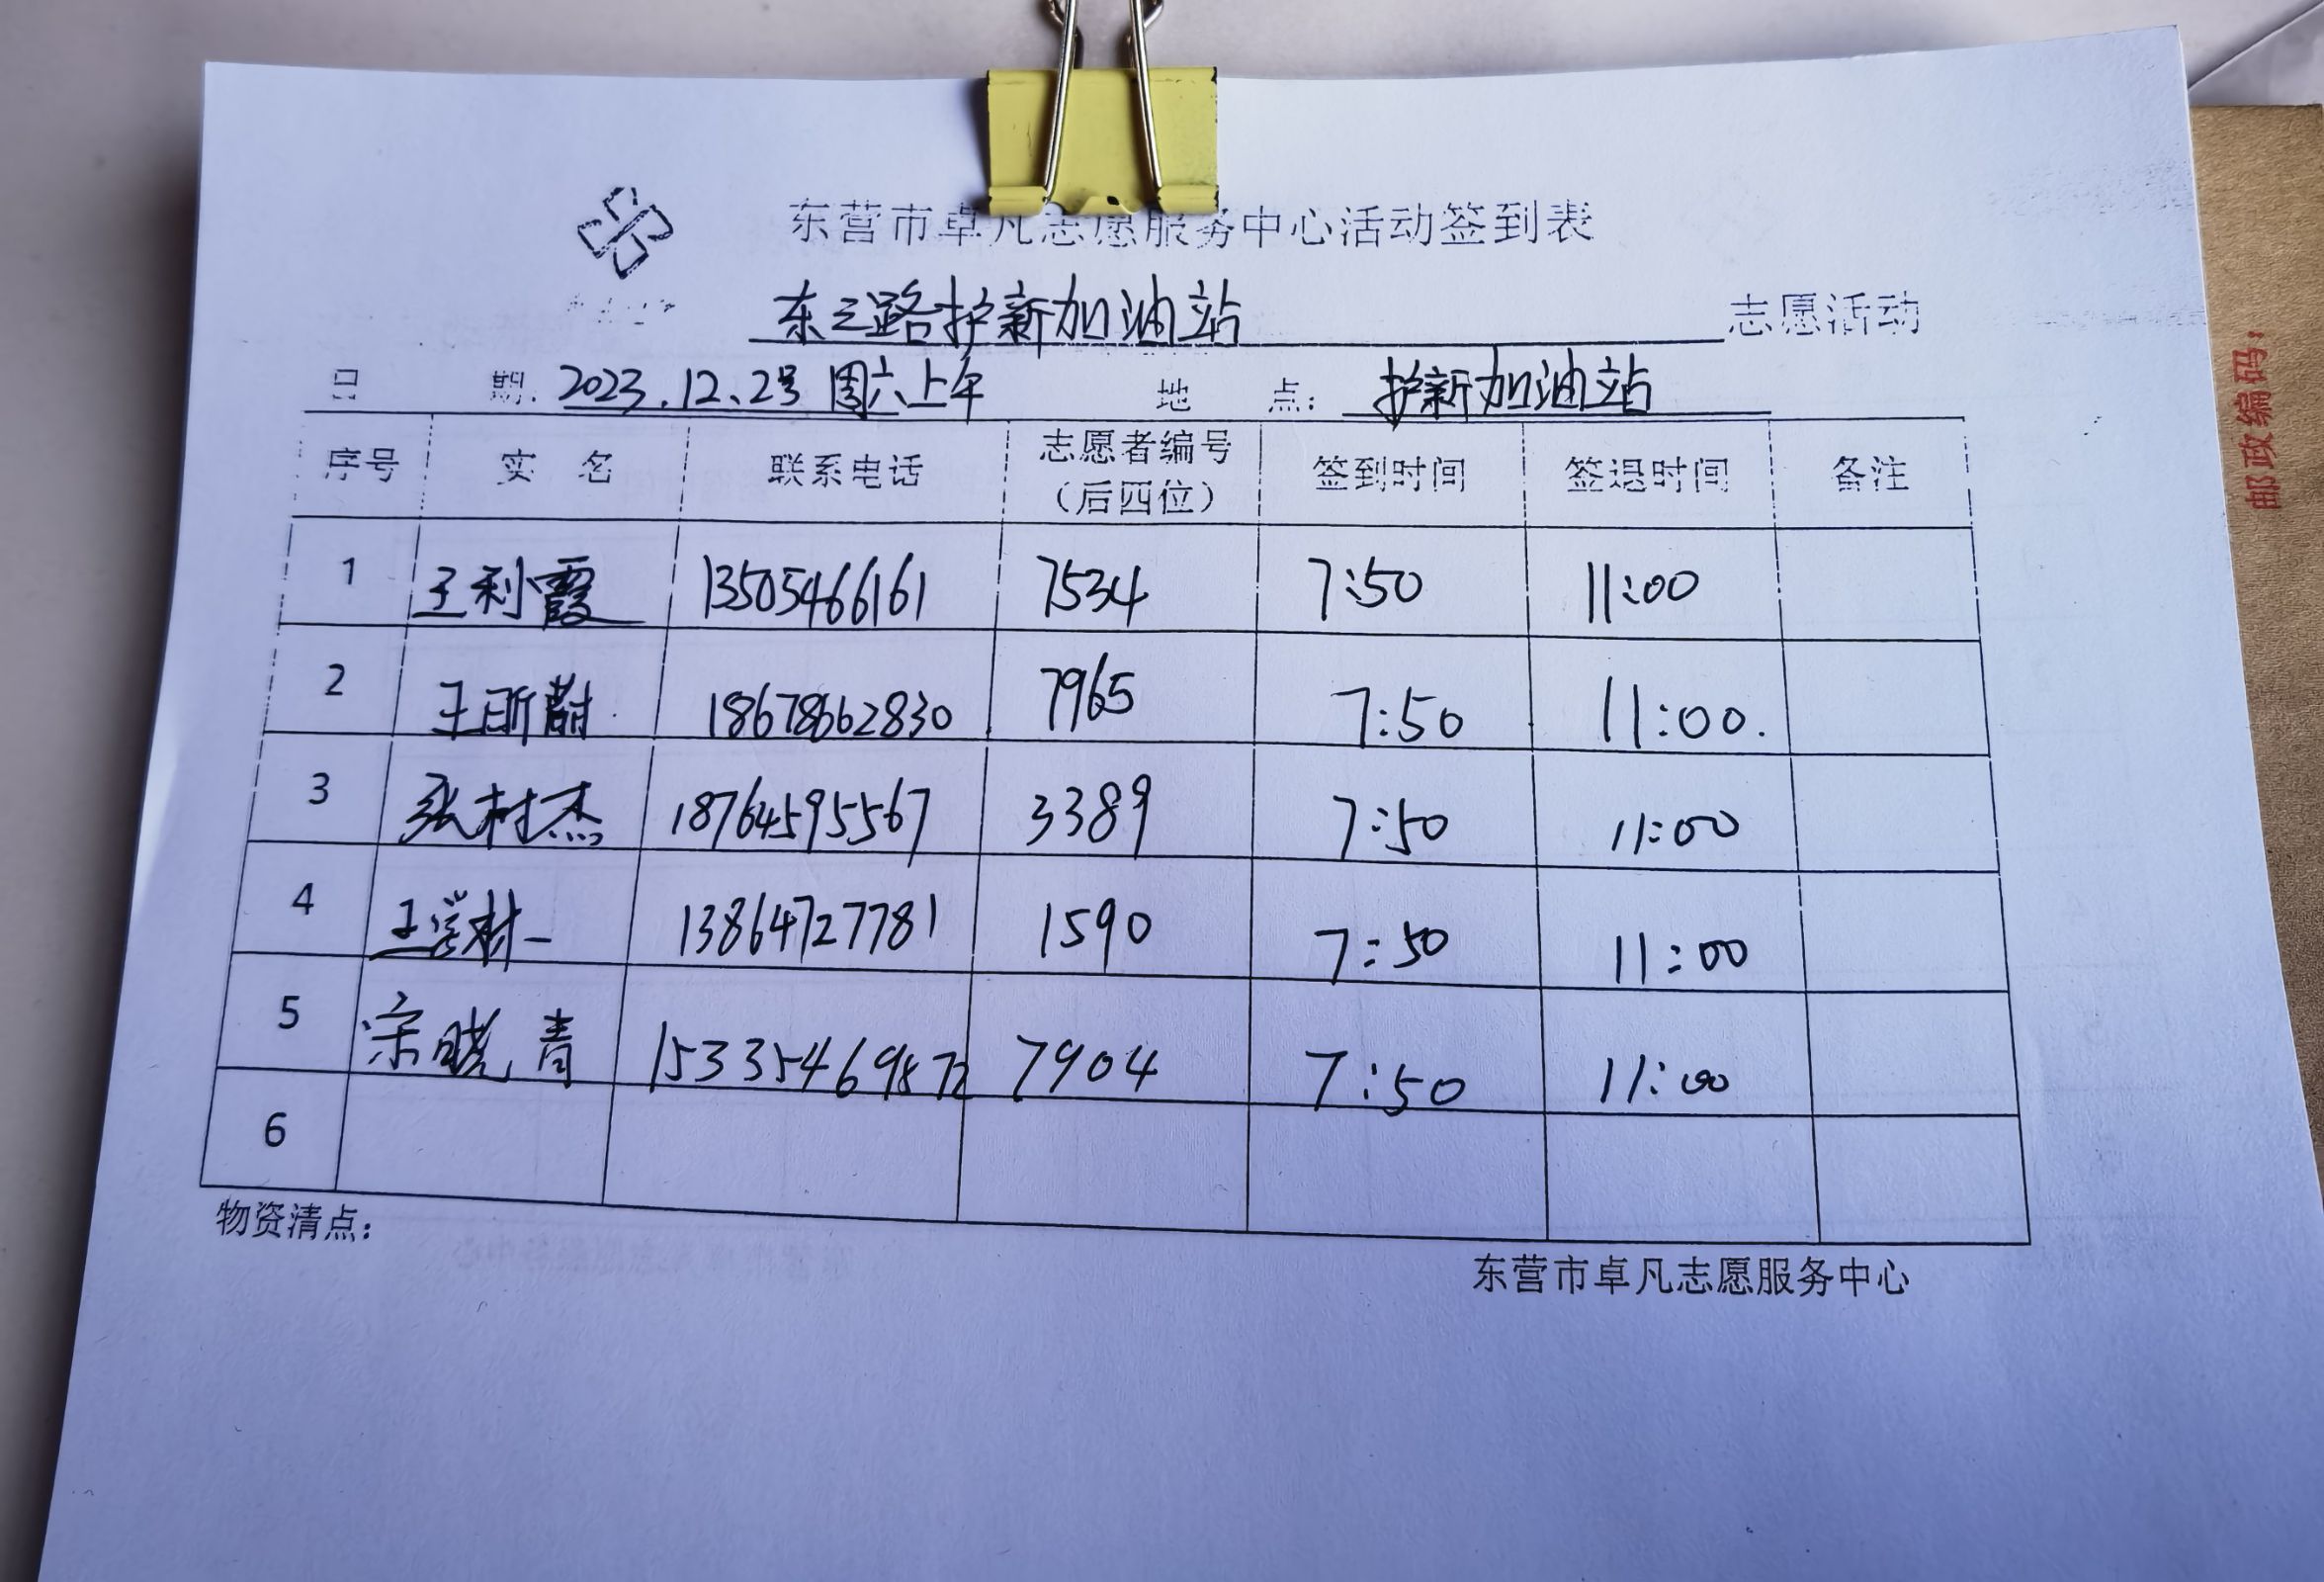 东营市卓凡志愿服务中心活动签到表
东三路护新加油站 志愿活动
日 期: 2023.12.2号 周六上午 地 点: 护新加油站
序号 实 名 联系电话 志愿者编号(后四位) 签到时间 签退时间 备注
1 王利霞 13505466161 7534 7:50 11:00
2 王昕蔚 18678662830 7965 7:50 11:00.
3 张村杰 18764595567 3389 7:50 11:00
4 王学材 13864727781 1590 7:50 11:00
5 宋晓青 7904 7:50 11:00
6
物资清点:
东营市卓凡志愿服务中心
邮政编码: